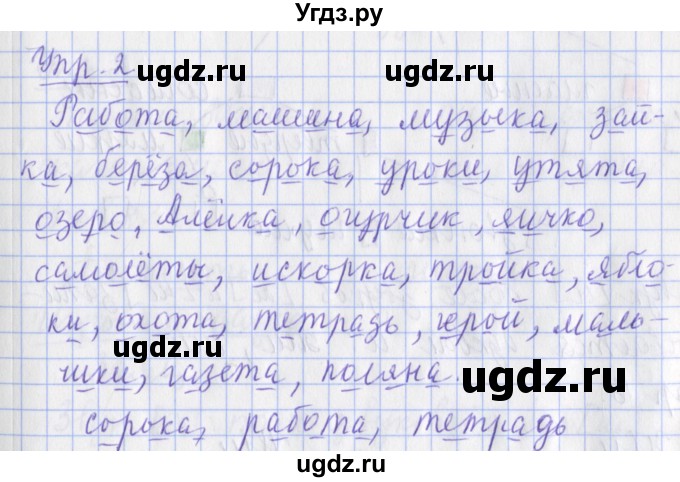 Угдз.ру
Упр. 2
ugdz.ru ugdz.ru
Работа, машина, музыка, зай-
ка, берёза, сорока, уроки, утята,
озеро, Алёнка, огурчик, яичко,
самолёты, искорка, тройка, ябло-
ки, охота, тетрадь, герой, маль-
ugdz.ru ugdz.ru
чики, газета, поляна.
сорока, работа, тетрадь
ugdz.ru